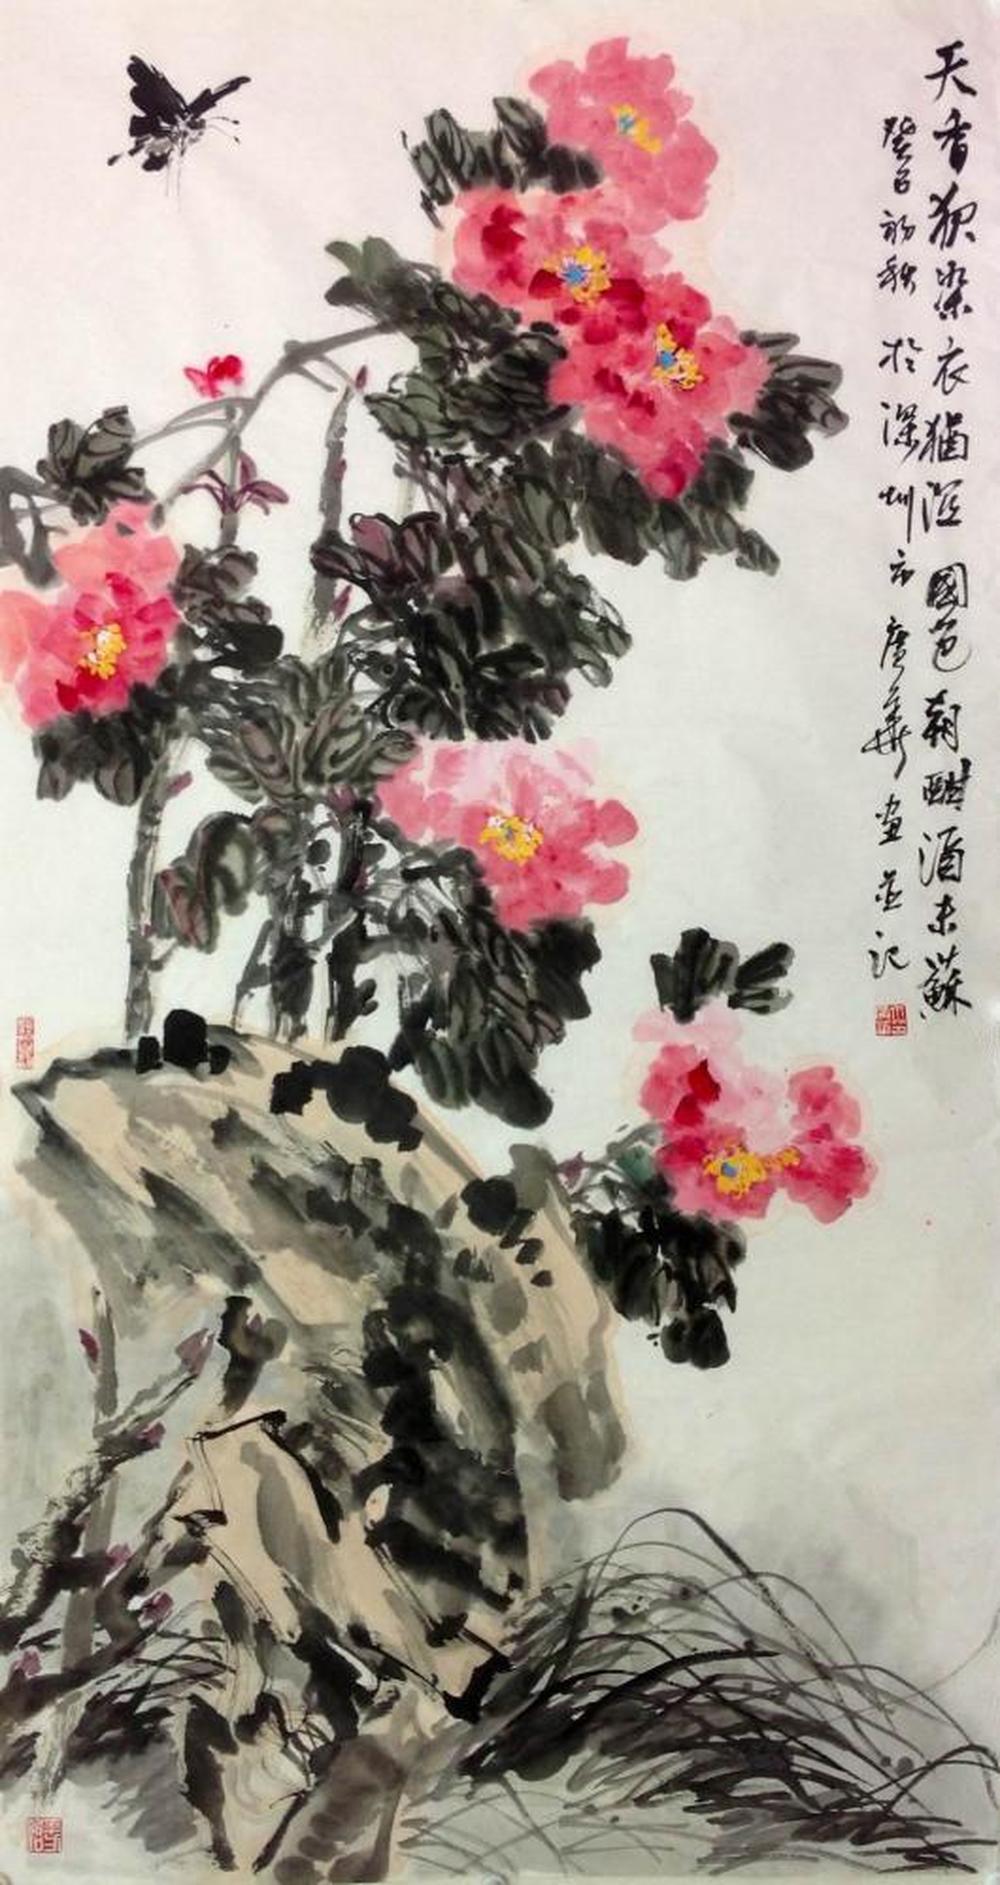 天香夜染衣猶溼國色朝酣酒未蘇
癸巳初秋於深圳市廣華画並記